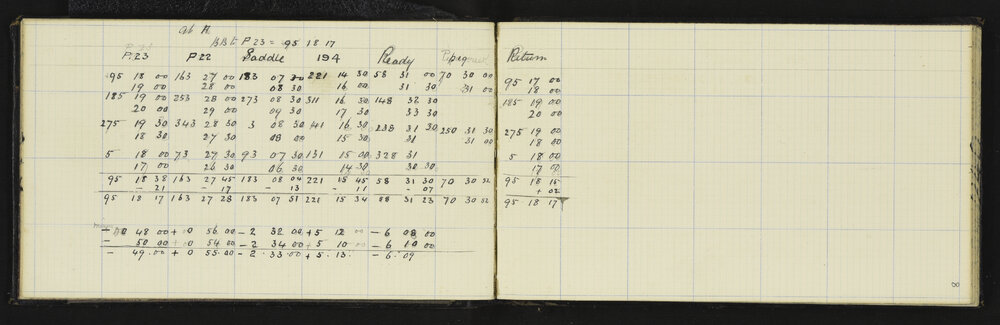 at A
BB to P 23 = 95 18 17
P.23 P22 Saddle 194 Ready Return
95 18 00 163 27 00 183 07 30 221 14 30 58 31 00 70 30 00 95 17 00
19 00 28 00 08 30 16 00 31 30 31 00 18 00
185 19 00 253 28 00 273 08 30 311 16 30 148 32 30 185 19 00
20 00 29 00 09 30 17 30 33 30 20 00
275 19 30 343 28 30 3 08 30 41 16 30 238 31 30 250 31 30 275 19 00
18 30 27 30 08 00 15 30 31 31 00 18 00
5 18 00 73 27 30 93 07 30 131 15 00 328 31 5 18 00
17 00 26 30 06 30 14 30 30 30 17 00
95 18 38 163 27 45 183 08 04 221 15 45 58 31 30 70 30 52 95 18 15
- 21 - 17 - 13 - 11 - 07 + 02
95 18 17 163 27 28 183 07 51 221 15 34 58 31 23 70 30 52 95 18 17
48 00 + 0 56 00 - 2 32 00 + 5 12 00 - 6 08 00
- 50 00 + 0 54 00 - 2 34 00 + 5 10 00 - 6 10 00
- 49.00 + 0 55.00 - 2.33.00 + 5.13. - 6.09
8